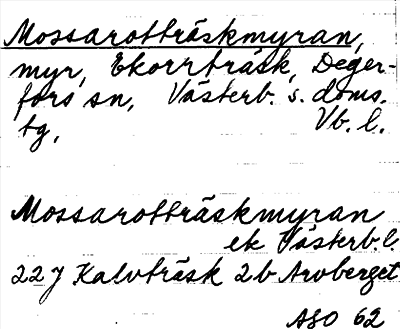 Mossarotträskmyran,
myr, Ekorrträsk, Deger-
fors sn, Västerb. s. doms.
tg, Vb. l.
Mossarotträskmyran
ek Västerb. l.
22 J Kalvträsk 2b Arvberget
ASO 62